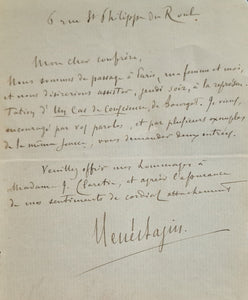 6 rue St Philippe du Roule
Mon cher confrère,
Nous sommes de passage à Paris, ma femme et moi,
et nous désirerions assister, jeudi soir, à la représen-
tation d'Un Cas de Conscience, de Bourget. Je viens,
encouragé par vos paroles, et par plusieurs exemples
de la même faveur, vous demander deux entrées.
Veuillez offrir nos hommages à
Madame J. Claretie, et agréer l'assurance
de nos sentiments de cordial attachement